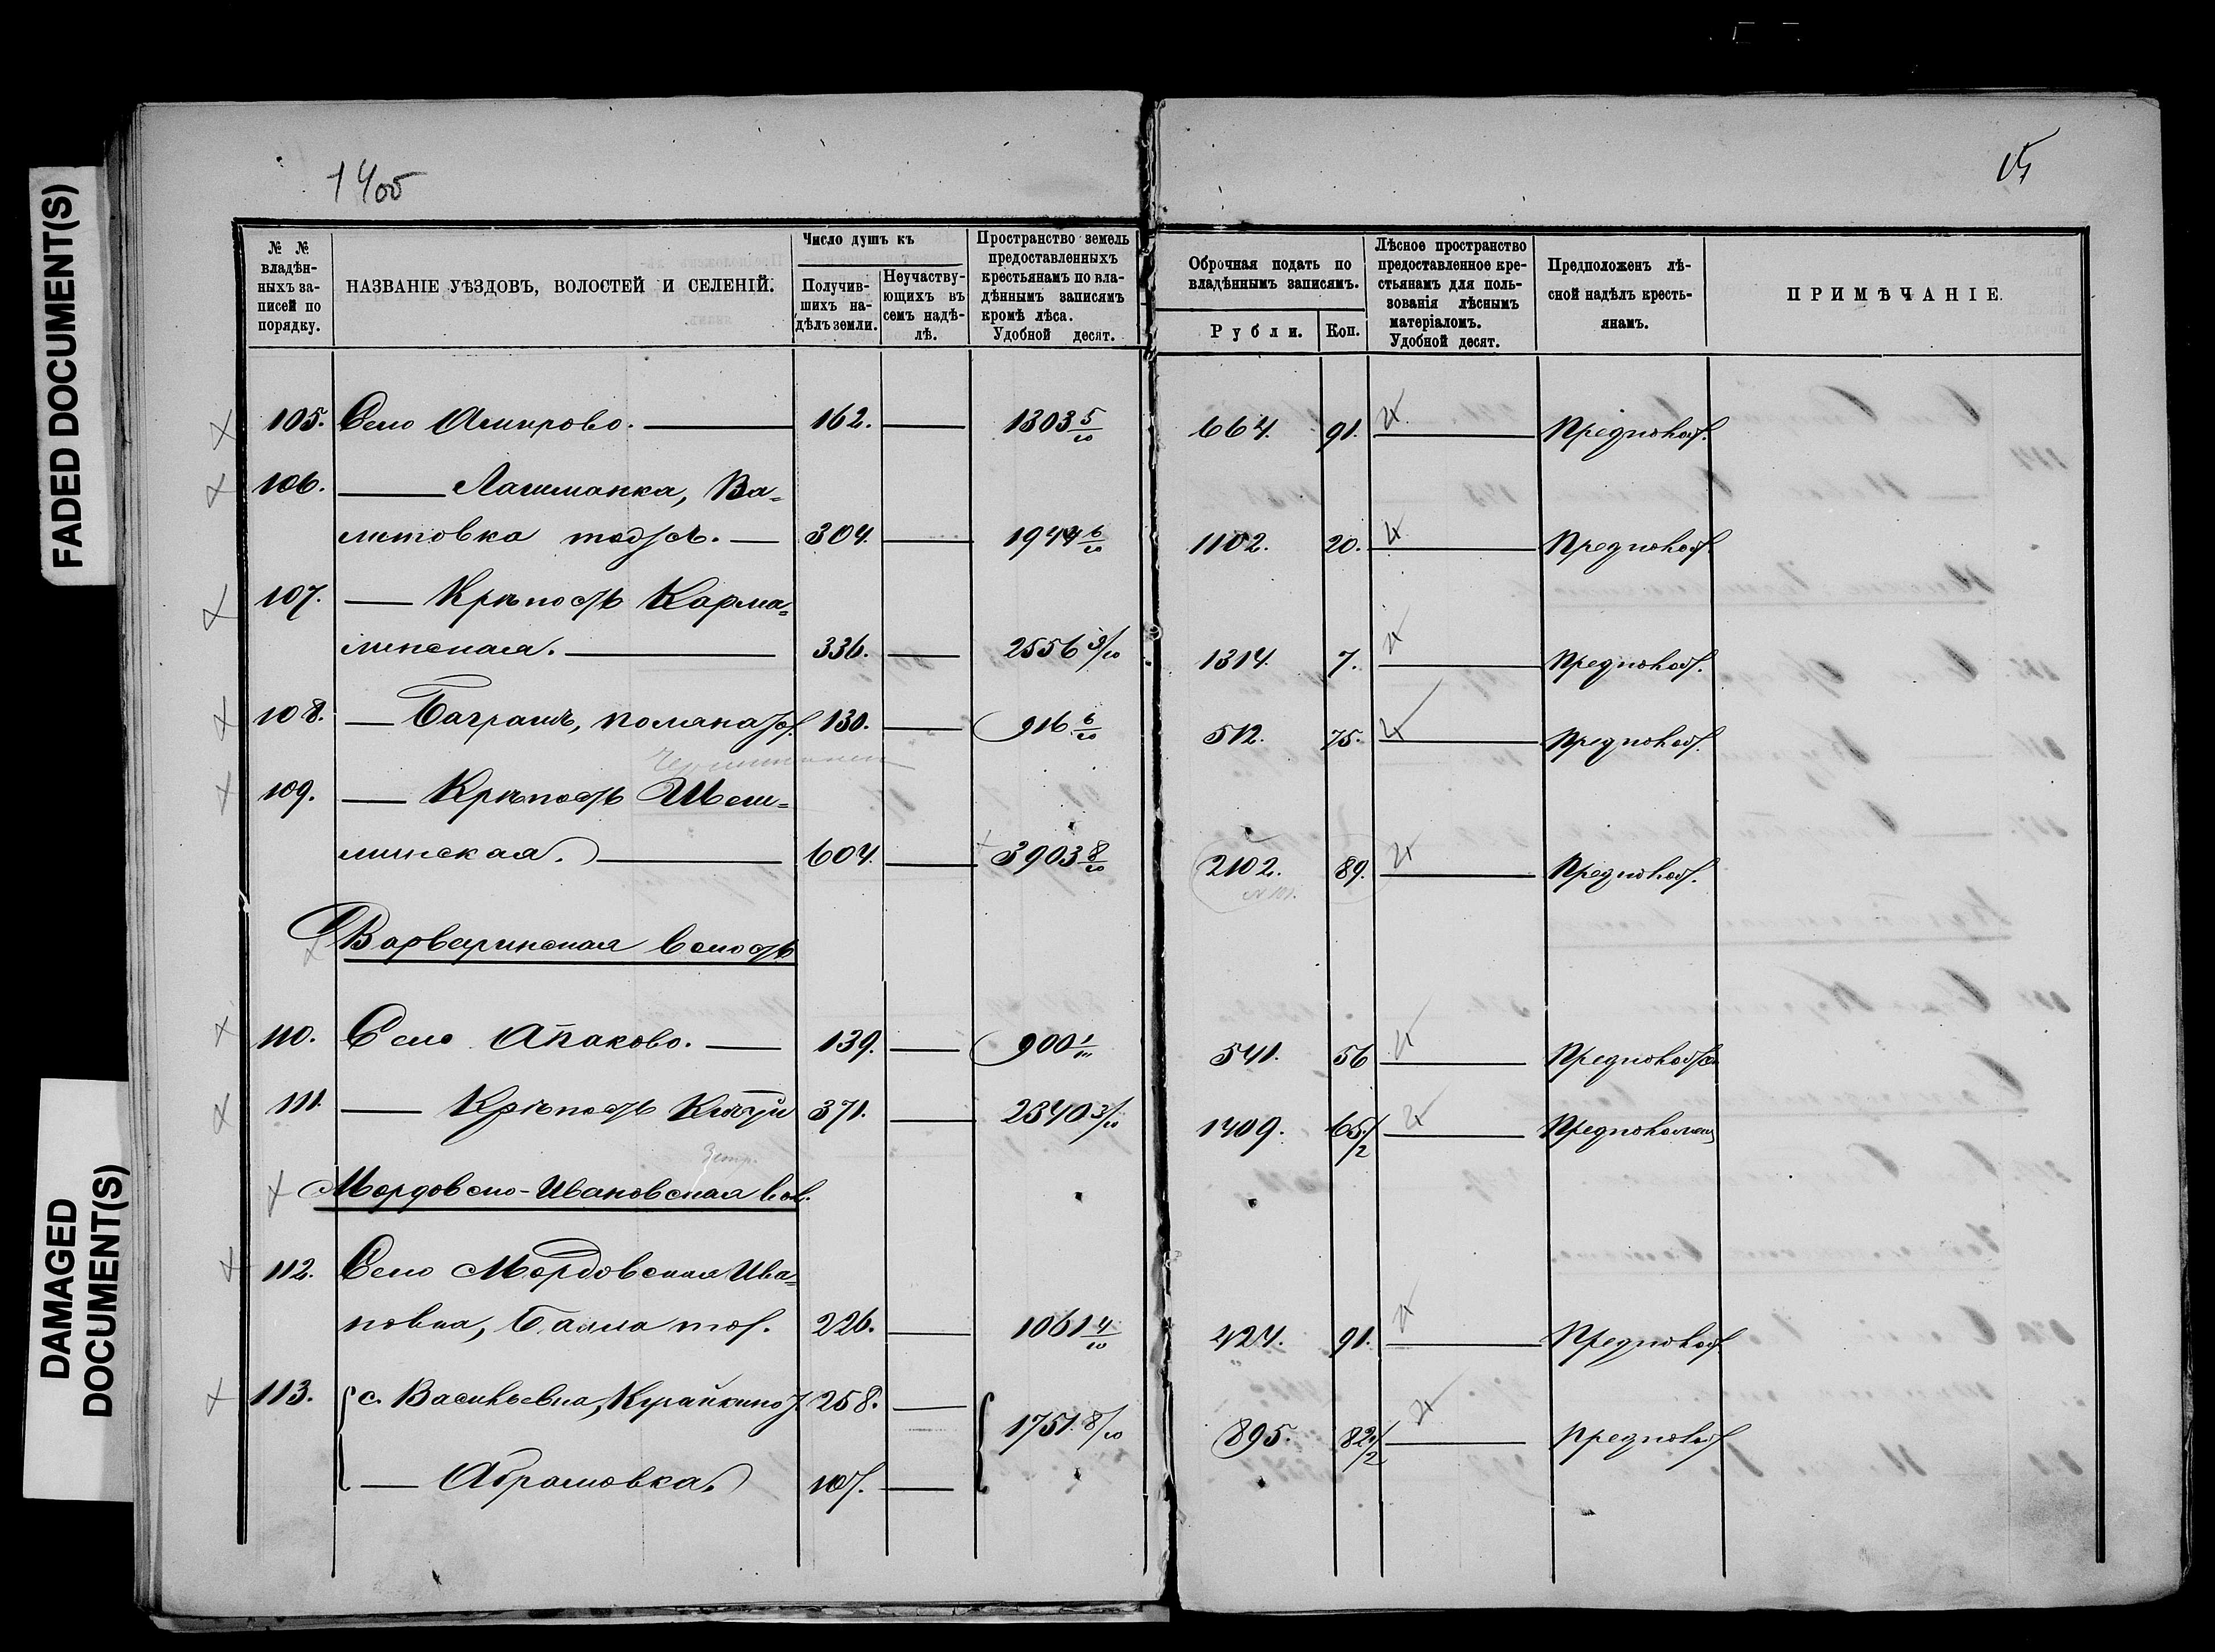 FADED DOCUMENT(S)
DAMAGED
DOCUMENT(S)
15
№ №
владѣн-
ныхъ за-
писей по
порядку.
НАЗВАНІЕ УѢЗДОВЪ, ВОЛОСТЕЙ И СЕЛЕНІЙ.
Число душъ къ
Получив-
шихъ на-
дѣлъ земли.
Неучаству-
ющихъ въ
семъ надѣ-
лѣ.
Пространство земель
предоставленныхъ
крестьянамъ по вла-
дѣннымъ записямъ
кромѣ лѣса.
Удобной десят.
Оброчная подать по
владѣннымъ записямъ.
Рубли. Коп.
Лѣсное пространство
предоставленное кре-
стьянамъ для поль-
зованія лѣснымъ
матеріаломъ.
Удобной десят.
Предположенъ лѣ-
сной надѣлъ кресть-
янамъ.
ПРИМѢЧАНІЕ.
105. Село Амирово. — 162. — 1303 5/10 664. 91. — Предполож.
106. — Лашманка, Ва=
литовка тож. — 304. — 1944 6/10 1102. 20. — Предполож.
107. — Крѣпость Карма=
линская. — 336. — 2556 9/10 1314. 7. — Предполож.
108. — Баграшъ, Поляна тож. 130. — 916 6/10 512. 75. — Предполож.
109. — Крѣпость Шеш=
минская. — 604. — 3903 8/10 2102. 89. — Предполож.
Варваринская волость
110. Село Апаково. — 139. — 900 1/10 541. 56 — Предположен
111. — Крѣпость Кичуй 371. — 2340 3/10 1409. 65 1/2 — Предположен
Мордовско-Ивановская вол.
112. Село Мордовская Ива=
новка, Баяла тож. 226. — 1061 4/10 424. 91. — Предполож.
113. с. Васильевка, Курайкино т. 258. — 1751 8/10 895. 82 1/2 — Предполож
— Абрамовка. 107. —